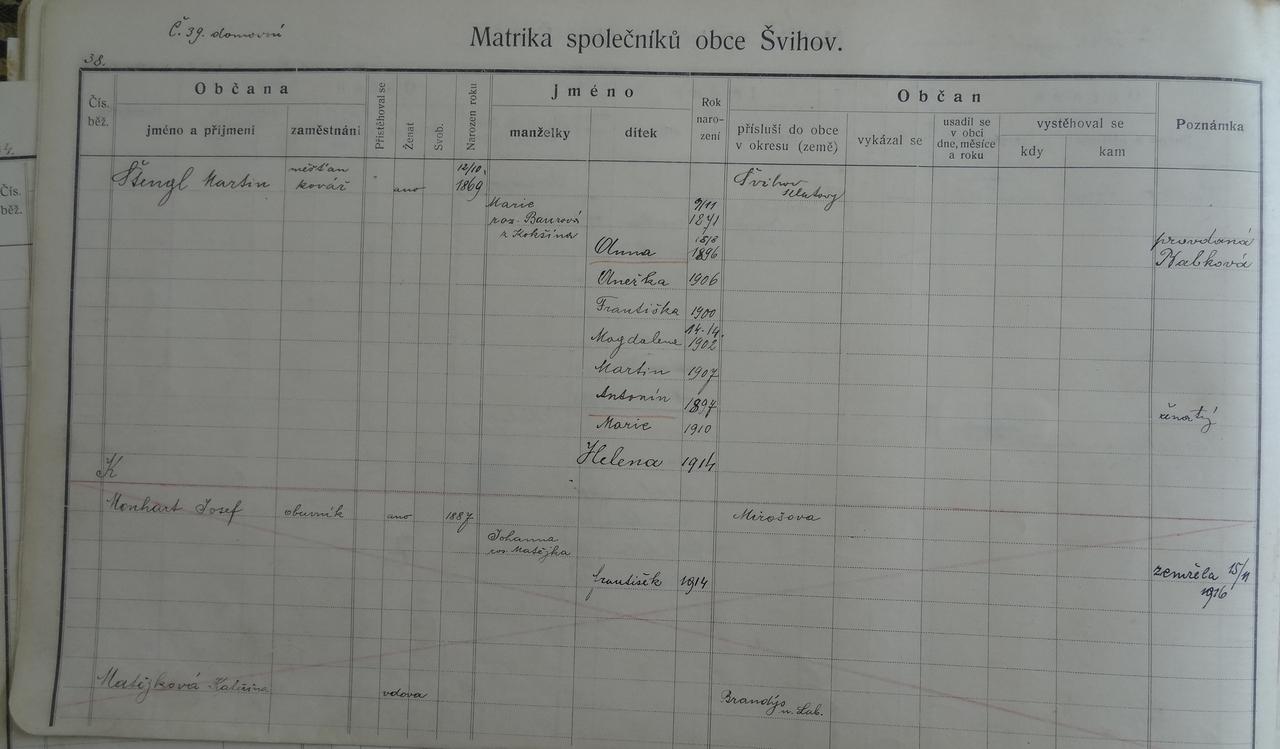 Č. 39. domovní
Matrika společníků obce Švihov.
38.
Čís. běž.
Občana
jméno a příjmení
zaměstnání
Přistěhoval se
Ženat
Svob.
Narozen roku
Jméno
manželky
dítek
Rok naro- zení
Občan
přísluší do obce v okresu (země)
vykázal se
usadil se v obci dne, měsíce a roku
vystěhoval se
kdy
kam
Poznámka
Štengl Martin
měšťan
kovář
ano
12/10.
1869
Švihov
Klatovy
Marie
roz. Baurová
z Kokšína
9/11
1871
Anna
1896
provdaná
Anežka 1906
Františka 1900
14.-14.
Magdalena 1902
Martin 1907
Antonín 1897
ženatý
Marie 1910
Helena 1914
K
Monhart Josef obuvník ano 1887 Mirošova
Johanna
roz. Matějka
františek 1914
zemřela 15/11
1916
Matějková Kateřina
vdova
Brandýs
n. Lab.
4.
Čís. běž.